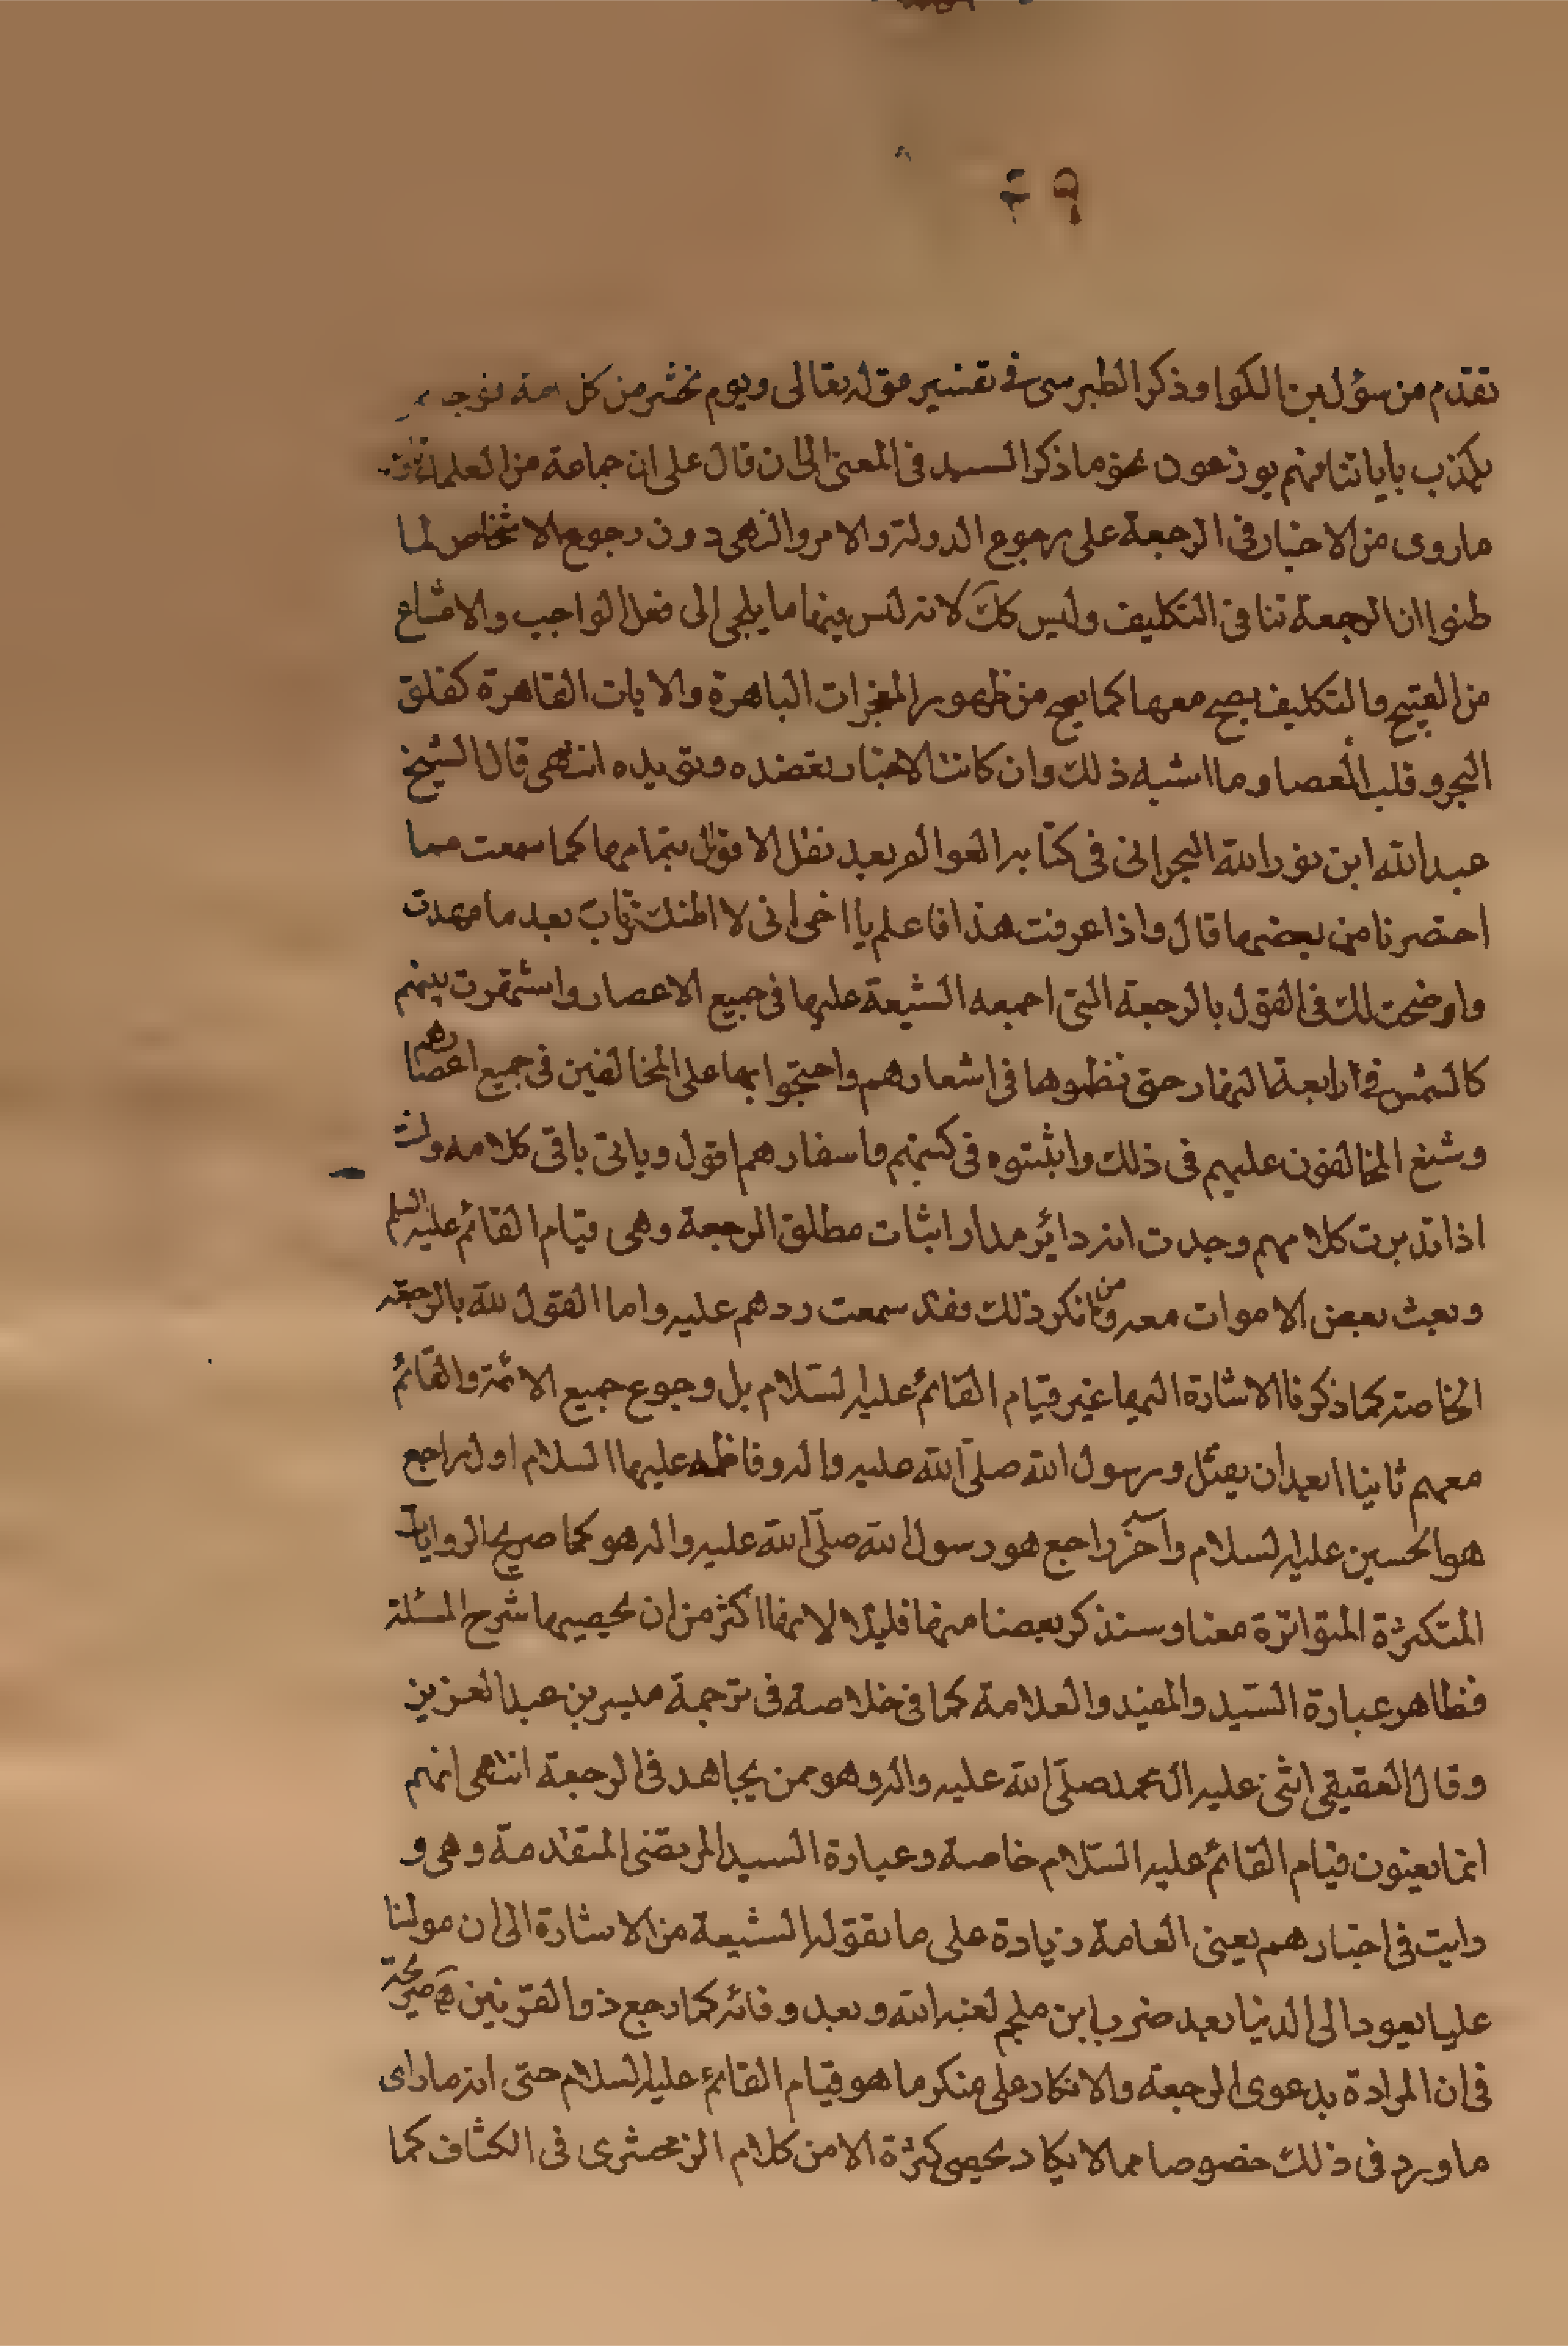 ٩٤
تقدم من سؤل بن الكوا وذكر الطبرسى فى تفسير قوله تعالى ويوم نحشر من كل امة فوجا
يكذب باياتنا فهم يوزعون نحو ما ذكر السيد فى المعنى الى ان قال على ان جماعة من العلماء
ما روى من الاخبار فى الرجعة على رجوع الدولة والامر والنهى دون رجوع الاشخاص لما
ظنوا ان الرجعة تنافى التكليف وليس كك لانه ليس فيها ما يلجى الى فعل الواجب والامتناع
من القبيح والتكليف يصح معها كما يصح من ظهور المعجزات الباهرة والايات القاهرة كفلق
البحر وقلب العصا وما اشبه ذلك وان كانت الاخبار تعضده وتؤيده انتهى قال الشيخ
عبد الله ابن نور الله البحرانى فى كتابه العوالم بعد نقل الاقوال بتمامها كما سمعت مما
احتصرنا من بعضها قال واذا عرفت هذا فاعلم يا اخى انى لا اظنك ترتاب بعد ما مهدت
واوضحت لك فى القول بالرجعة التى اجمعه الشيعة عليها فى جميع الاعصار واشتهرت بينهم
كالشمس فى رابعة النهار حتى نظموها فى اشعارهم واحتجوا بها على المخالفين فى جميع اعصارهم
وشنع المخالفون عليهم فى ذلك واثبتوه فى كتبهم واسفارهم اقول وياتى باقى كلامه وانت
اذا تدبرت كلامهم وجدت انه دائر مدار اثبات مطلق الرجعة وهى قيام القائم عليه السلم
وبعث بعض الاموات معه ومن انكر ذلك فقد سمعت ردهم عليه واما القول لله بالرجعة
الخاصة كما ذكرنا الاشارة اليها غير قيام القائم عليه السلام بل رجوع جميع الائمة والقائم
معهم ثانيا ابعد ان يقتل ورسول الله صلى الله عليه واله وفاطمه عليهما السلام اول راجع
هو الحسين عليه السلام وآخر راجع هو رسول الله صلى الله عليه واله هو كما صريح الروايات
المتكثرة المتواترة معنا وسنذكر بعضا منها قليلا لانها اكثر من ان يحصيها شرح المسئلة
فظاهر عبارة السيد والمفيد والعلامة كما فى خلاصة فى ترجمة ميسر بن عبد العزيز
وقال العقيقى اثنى عليه ال محمد صلى الله عليه واله وهو ممن يجاهد فى الرجعة انتهى انهم
انما يعنون قيام القائم عليه السلام خاصة وعبارة السيد المرتضى المتقدمة وهى و
رايت فى اخبارهم يعنى العامة زيادة على ما تقوله الشيعة من الاشارة الى ان مولنا
عليا يعود الى الدنيا بعد ضرب ابن ملجم لعنه الله وبعد وفاته كما رجع ذو القرنين صريحة
فى ان المرادة بدعوى الرجعة والانكار على منكر ما هو قيام القائم عليه السلام حتى انه ما راى
ما ورد فى ذلك خصوصا مما لا يكاد يحصى كثرة الا من كلام الزمحشرى فى الكشاف كما